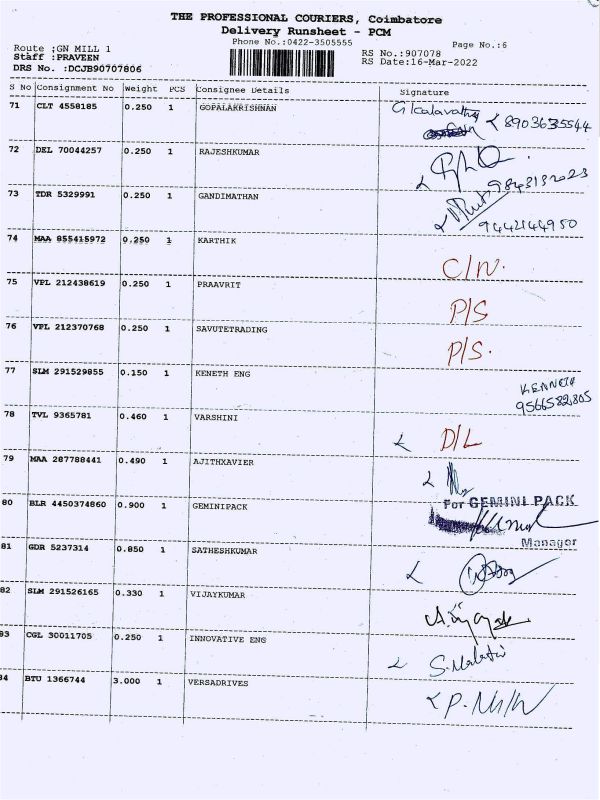 THE PROFESSIONAL COURIERS, Coimbatore
Delivery Runsheet - PCM
Phone No.:0422-3505555
Page No.:6
Route :GN MILL 1
RS No.:907078
Staff :PRAVEEN
RS Date:16-Mar-2022
DRS No. :DCJB90707806
S No Consignment No Weight PCS Consignee Details Signature
71 CLT 4558185 0.250 1 GOPALAKRISHNAN
8903635544
72 DEL 70044257 0.250 1 RAJESHKUMAR
73 TDR 5329991 0.250 1 GANDIMATHAN
9442144950
74 MAA 855415972 0.250 1 KARTHIK
C/N.
75 VPL 212438619 0.250 1 PRAAVRIT
P/S
76 VPL 212370768 0.250 1 SAVUTETRADING
P/S.
77 SLM 291529855 0.150 1 KENETH ENG
9566582805
78 TVL 9365781 0.460 1 VARSHINI
D/L
79 MAA 287788441 0.490 1 AJITHXAVIER
80 BLR 4450374860 0.900 1 GEMINIPACK
For GEMINI PACK
Manager
81 GDR 5237314 0.850 1 SATHESHKUMAR
82 SLM 291526165 0.330 1 VIJAYKUMAR
83 CGL 30011705 0.250 1 INNOVATIVE ENG
84 BTU 1366744 3.000 1 VERSADRIVES